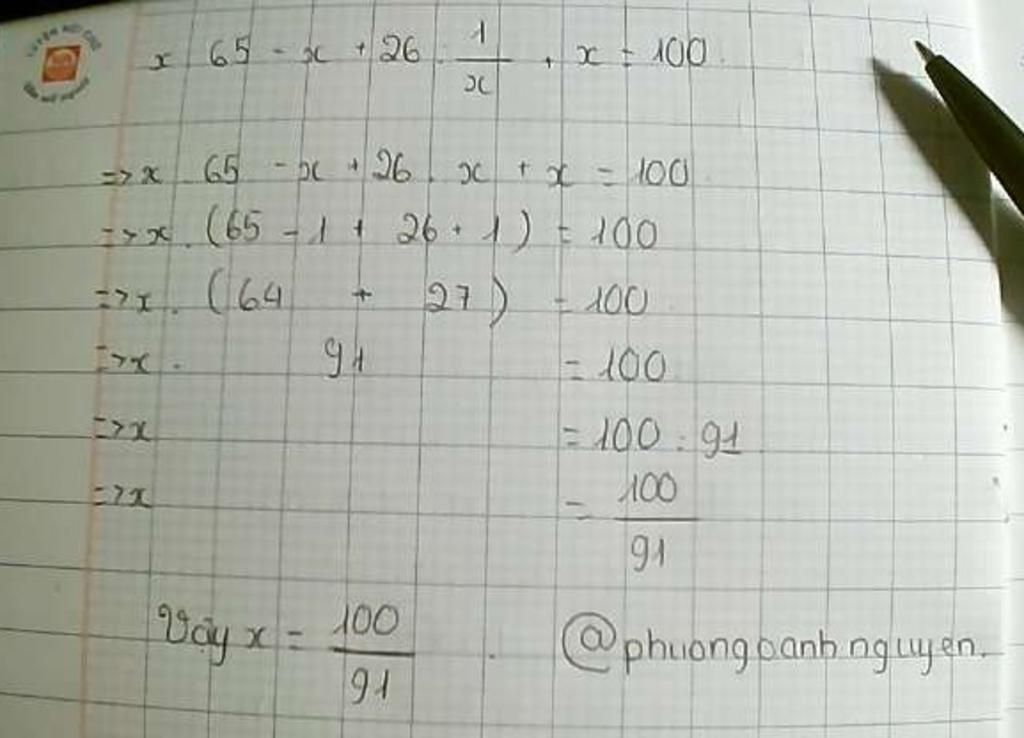 x . 65 - x + 26 : 1/x + x = 100
=> x . 65 - x + 26 . x + x = 100
=> x . (65 - 1 + 26 + 1) = 100
=> x . (64 + 27) = 100
=> x . 91 = 100
=> x = 100 : 91
=> x = 100/91
Vậy x = 100/91 . @phuongoanhnguyen.